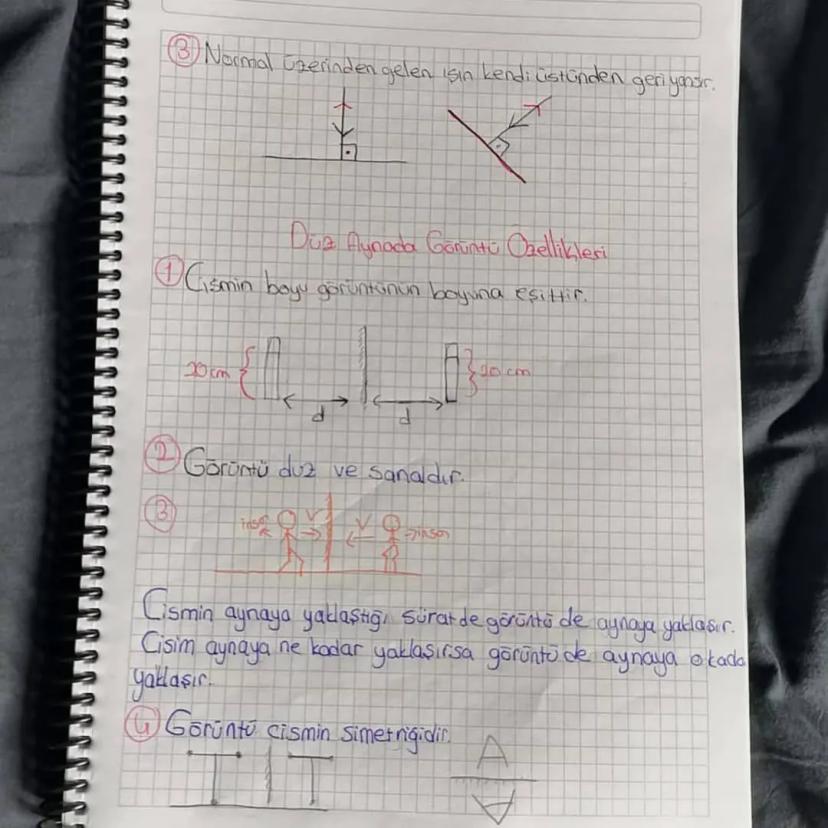 ③ Normal üzerinden gelen ışın kendi üstünden geri yansır.
Düz Aynada Görüntü Özellikleri
① Cismin boyu görüntünün boyuna eşittir.
20cm
20 cm
d
d
② Görüntü düz ve sanaldır.
③
V
V
insan
Cismin aynaya yaklaştığı süratde görüntü de aynaya yaklaşır.
Cisim aynaya ne kadar yaklaşırsa görüntü de aynaya o kada
yaklaşır.
④ Görüntü cismin simetriğidir.
A
A